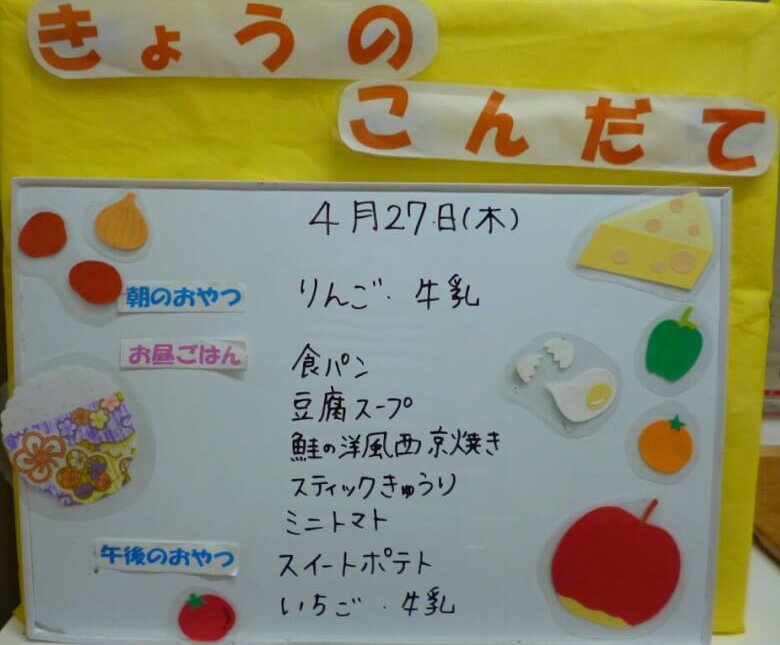 きょうの
こんだて
4月27日(木)
朝のおやつ りんご・牛乳
お昼ごはん 食パン
豆腐スープ
鮭の洋風西京焼き
スティックきゅうり
ミニトマト
午後のおやつ スイートポテト
いちご・牛乳